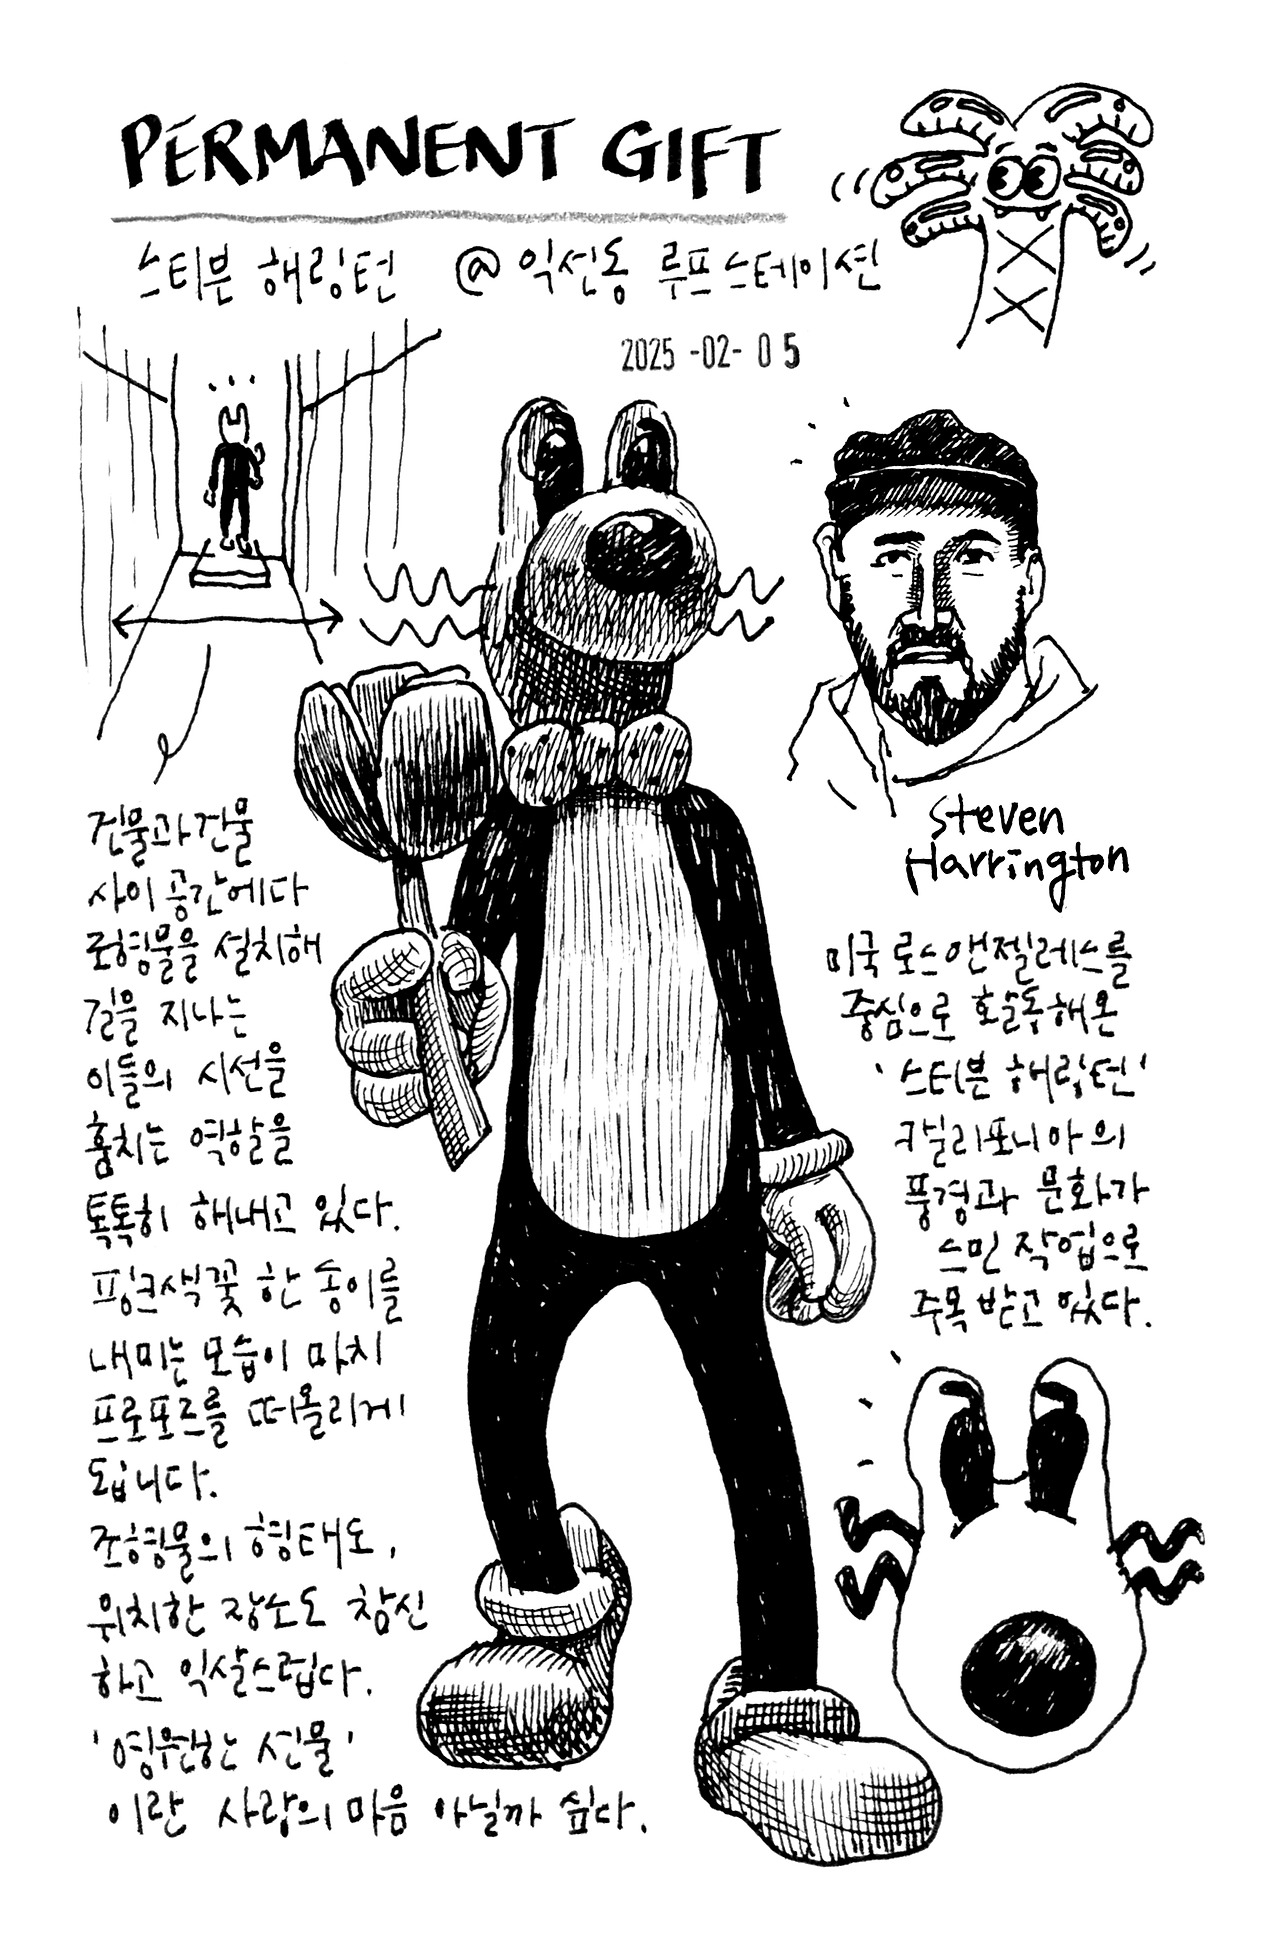 PERMANENT GIFT
스티븐 해링턴 @ 익선동 루프스테이션
2025 -02- 05
건물과 건물
사이 공간에다
조형물을 설치해
길을 지나는
이들의 시선을
훔치는 역할을
톡톡히 해내고 있다.
핑크색 꽃 한 송이를
내미는 모습이 마치
프로포즈를 떠올리게
됩니다.
조형물의 형태도,
위치한 장소도 참신
하고 익살스럽다.
'영원한 선물'
이란 사랑의 마음 아닐까 싶다.
Steven
Harrington
미국 로스앤젤레스를
중심으로 활동해온
'스티븐 해링턴'
캘리포니아의
풍경과 문화가
스민 작업으로
주목 받고 있다.